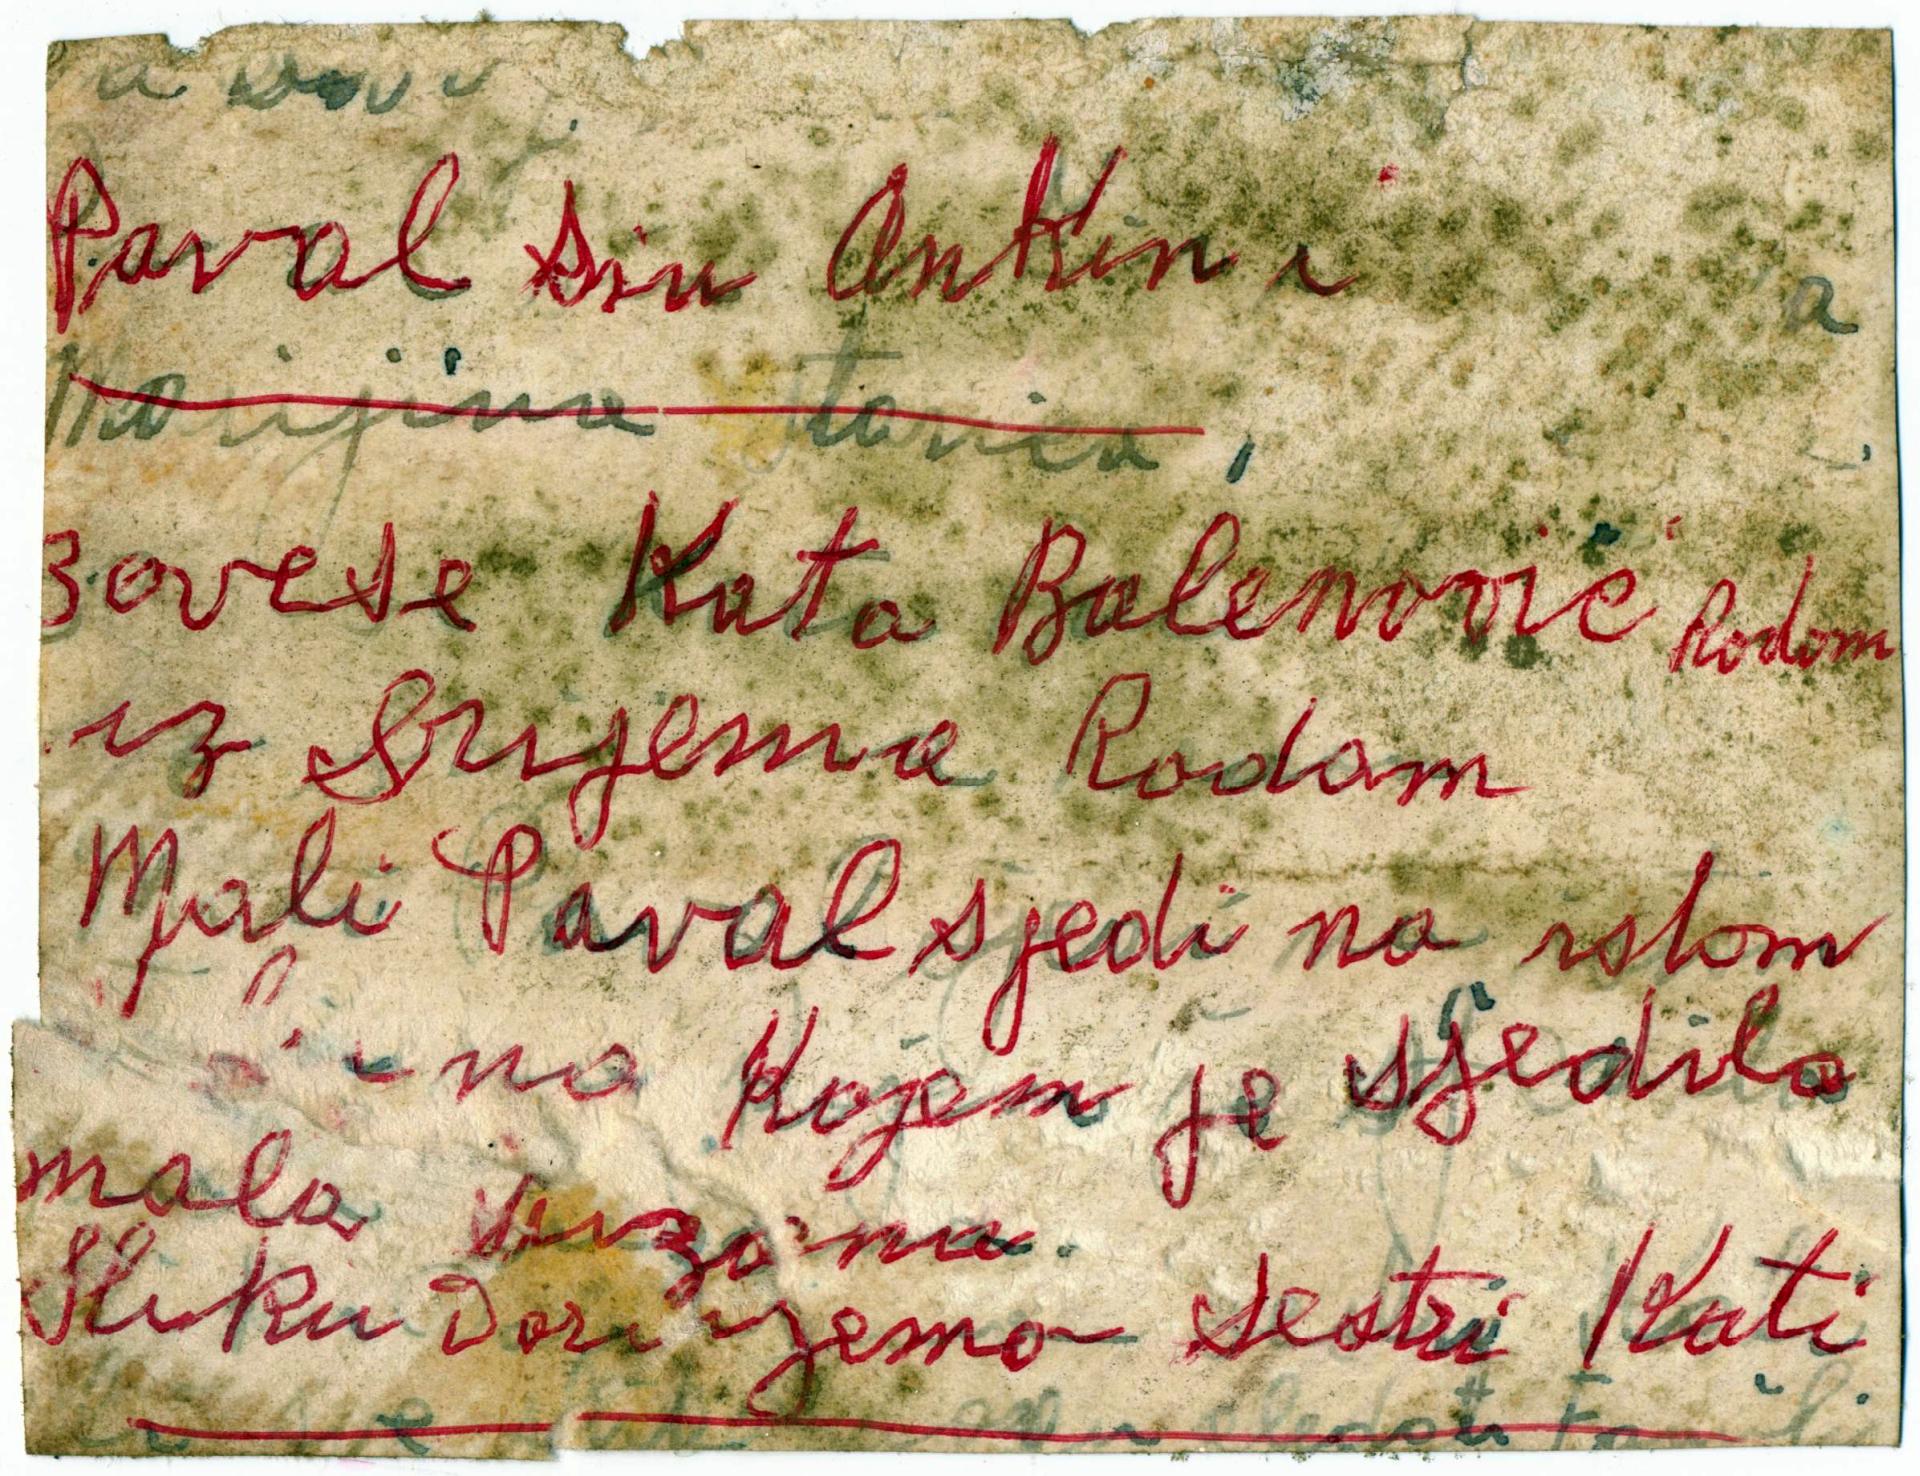 Paval sin Ankin i
Marijina starica,
a
zovese Kata Balenović Rodom
iz Srijema Rodam
Mali Paval sjedi na istom
na Kojem je sjedila
mala Suzana.
Sliku Darujemo sestri Kati